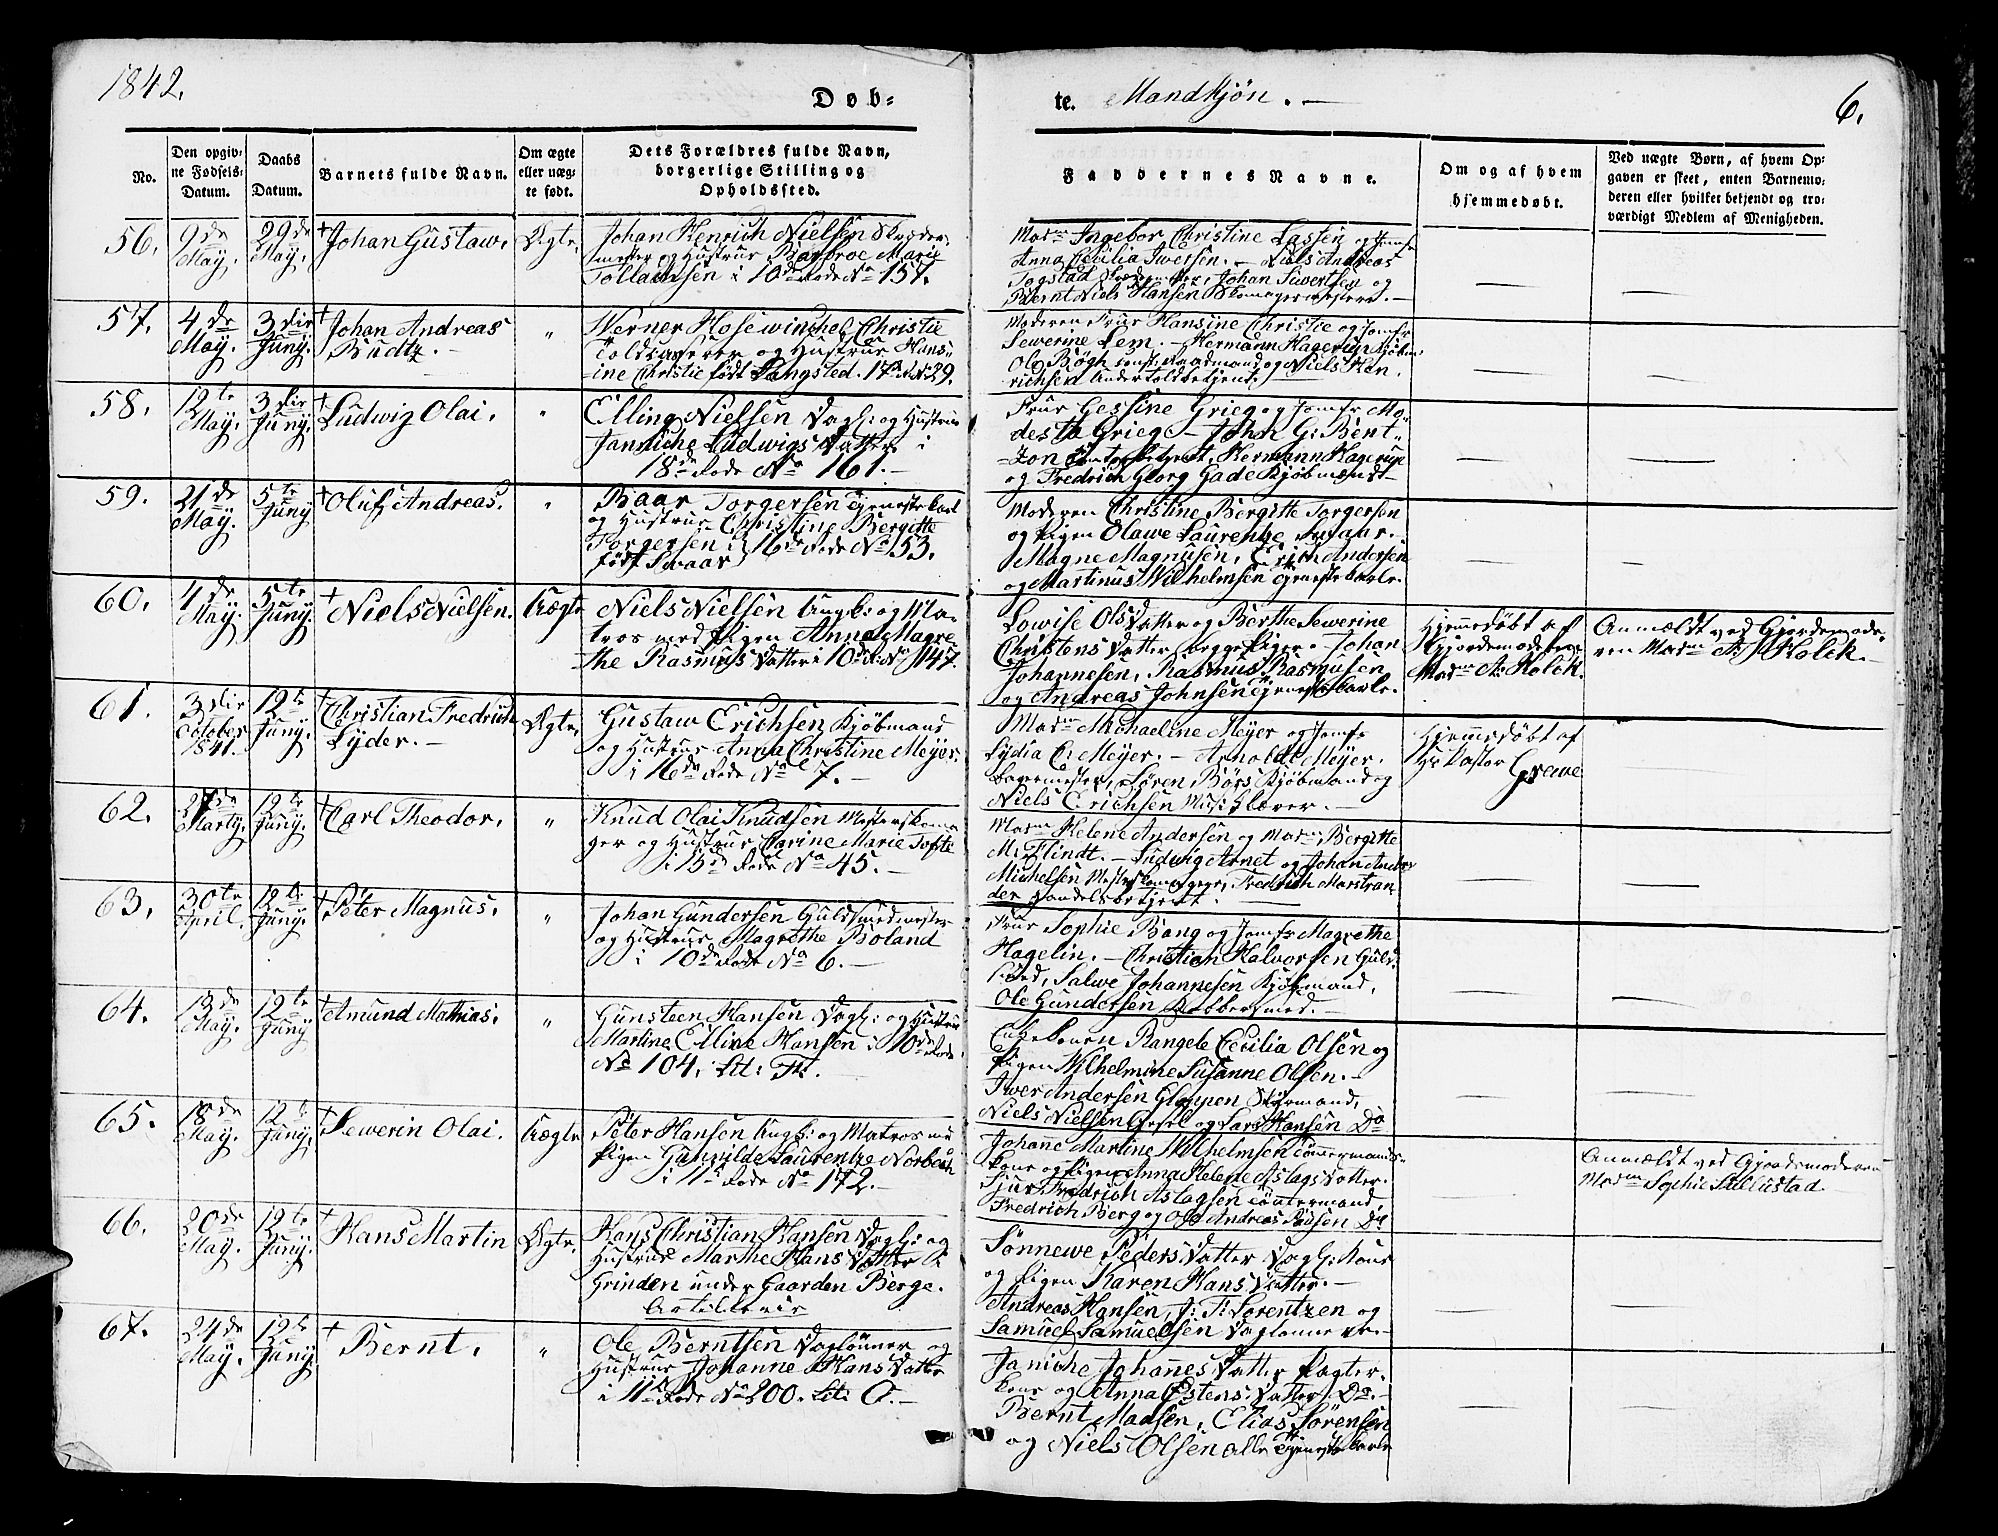 1842.
Døb-
te. Mandkjøn. —
6.
No.
Den opgiv-
ne Fødsels-
Datum.
Daabs
Datum.
Barnets fulde Navn.
Om ægte
eller uæg-
te født.
Dets Forældres fulde Navn,
borgerlige Stilling og
Opholdssted.
Faddernes Navne.
Om og af hvem
hjemmedøbt.
Ved uægte Børn, af hvem Op-
gaven er skeet, enten Barnemo-
deren eller hvilket bekjendt og tro-
værdigt Medlem af Menigheden.
56.
9de
May.
29de
May.
Johan Gustaw.
Ægte.
Johan Henrich Nielsen Skræder-
mester og Hustrue Barbroe Marie
Tollamsen i 10de Rode No 157.
Madm Ingebor Christine Lassen og Jomfr
Anna Cecilia Iwersen. — Niels Andreas
Togstad Skrædermester, Johan Siwertsen og
Bernt Niels Hansen Skomagermestere. —
57.
4de
May.
3die
Juny.
Johan Andreas
Budtz. —
"
Werner Hosewinchel Christie
Toldcasserer og Hustrue Hans-
ine Christie født Langsted. 17de R. No 29.
Moderen Frue Hansine Christie og Jomfr
Sewerine Lem. — Hermann Hagerup Kjøbm:
Ole Bøgh const: Raadmand og Niels Hen-
richsen Undertoldbetjent.
58.
12te
May.
3die
Juny.
Ludwig Olai.
"
Elling Nielsen Dagl: og Hustrue
Janniche Ludwigs Datter i
18de Rode No 161. —
Frue Gessine Grieg og Jomfr Mo-
desta Grieg — John G: Bent-
zon Hermann Hagerup
og Fredrich Georg Gade Kjøbmænd —
59.
21de
May.
5te
Juny
Oluf Andreas.
"
Baar Torgersen Tjenestekarl
og Hustrue Christine Bergitte
Torgersen i 16de Rode No 53.
født Swaar
Moderen Christine Bergitte Torgersen
og Pigen Olawe Laurentze Swaar. —
Magne Magnusen, Erich Andersen
og Martinus Wilhelmsen Tjenestekarle.
60.
4de
May.
5te
Juny.
Niels Nielsen.
Uægte
Niels Nielsen Ungk: og Ma-
tros med Pigen Anna Magre-
the Rasmus Datter i 10de R. No 147.
Lowise Ols Datter og Berthe Sewerine
Christens Datter begge Piger. — Johan
Johannesen, Rasmus Rasmusen
og Andreas Johnsen Tjenestekarle.
Hjemmedøbt af
Gjordemoderen
Madm A: Holck.
Anmældt ved Gjordemode-
ren Madm A: Holck. —
61.
3die
October
1841.
12te
Juny.
Christian Fredrich
Lyder. —
Ægte.
Gustaw Erichsen Kjøbmand
og Hustrue Anna Christine Meyer.
i 16de Rode No 7. —
Madm Michaeline Meyer og Jomfr
Lydia C: Meyer. — Arnoldt Meyer.
Søren Børs Kjøbmand og
Niels Erichsen Musiklærer. —
Hjemmedøbt af
Hr Pastor Grewe
62.
27de
Marty.
12te
Juny.
Carl Theodor.
"
Knud Olai Knudsen Mesterskoma-
ger og Hustrue Carine Marie Tofte
i 13de Rode No 45. —
Madm Helene Andersen og Madm Bergitte
M: Flindt. — Ludwig Arnet og Johan Andreas
Michelsen Mesterskomagere, Fredrich Marstran-
der Handelsbetjent.
63.
30te
April.
12te
Juny.
Peter Magnus.
"
Johan Gundersen Guldsmedmester
og Hustrue Magrethe Boland
i 10de Rode No 6. —
Frue Sophie Bang og Jomfr Magrethe
Hagelin. — Christian Halvorsen Guld-
smed, Salwe Johannesen Kjøbmand,
Ole Gundersen Kobbersmed. —
64.
13de
May.
12te
Juny
Amund Mathias.
"
Gunsteen Hansen Dagl: og Hustrue
Martine Elline Hansen i 10de Rode
No 104. Lit: F.
Enkekonen Rangele Cecilia Olsen og
Pigen Wilhelmine Susanne Olsen. —
Iwer Andersen Gloppen Styrmand,
Niels Nielsen og Lars Hansen Do
65.
18de
May.
12te
Juny.
Sewerin Olai.
Uægte
Peter Hansen Ungk: og Matros m:
Pigen Gunnilde Laurentze Norbech
i 11te Rode No 172. —
Johanne Martine Wilhelmsen Tømmermands-
kone og Pigen Anna Helene Aslags Datter.
Sjur Fredrich Aslagsen Tømmermand,
Fredrich Berg og Ole Andreas Poulsen Do
Anmældt ved Gjordemoderen
Madm Sophie Sælestad.
66.
20de
May.
12te
Juny.
Hans Martin
Ægte.
Hans Christian Hansen Dagl: og
Hustrue Marthe Hans Datter i
Grinden under Gaarden Berge.
Artillerie
Sønnewe Peders Datter Dagl: Kone
og Pigen Karen Hans Datter. —
Andreas Hansen, J: F: Lorentzen og
Samuel Samuelsen Daglønnere. —
67.
24de
May.
12te
Juny.
Bernt.
"
Ole Berntsen Dagløner og
Hustrue Johanne Hans Datter
i 11te Rode No 200. Lit: C. —
Janiche Johannes Datter
kone og Anna Ostens Datter Do. —
Bernt Madsen, Elias Sørensen
og Niels Olsen alle Tjenestekarle